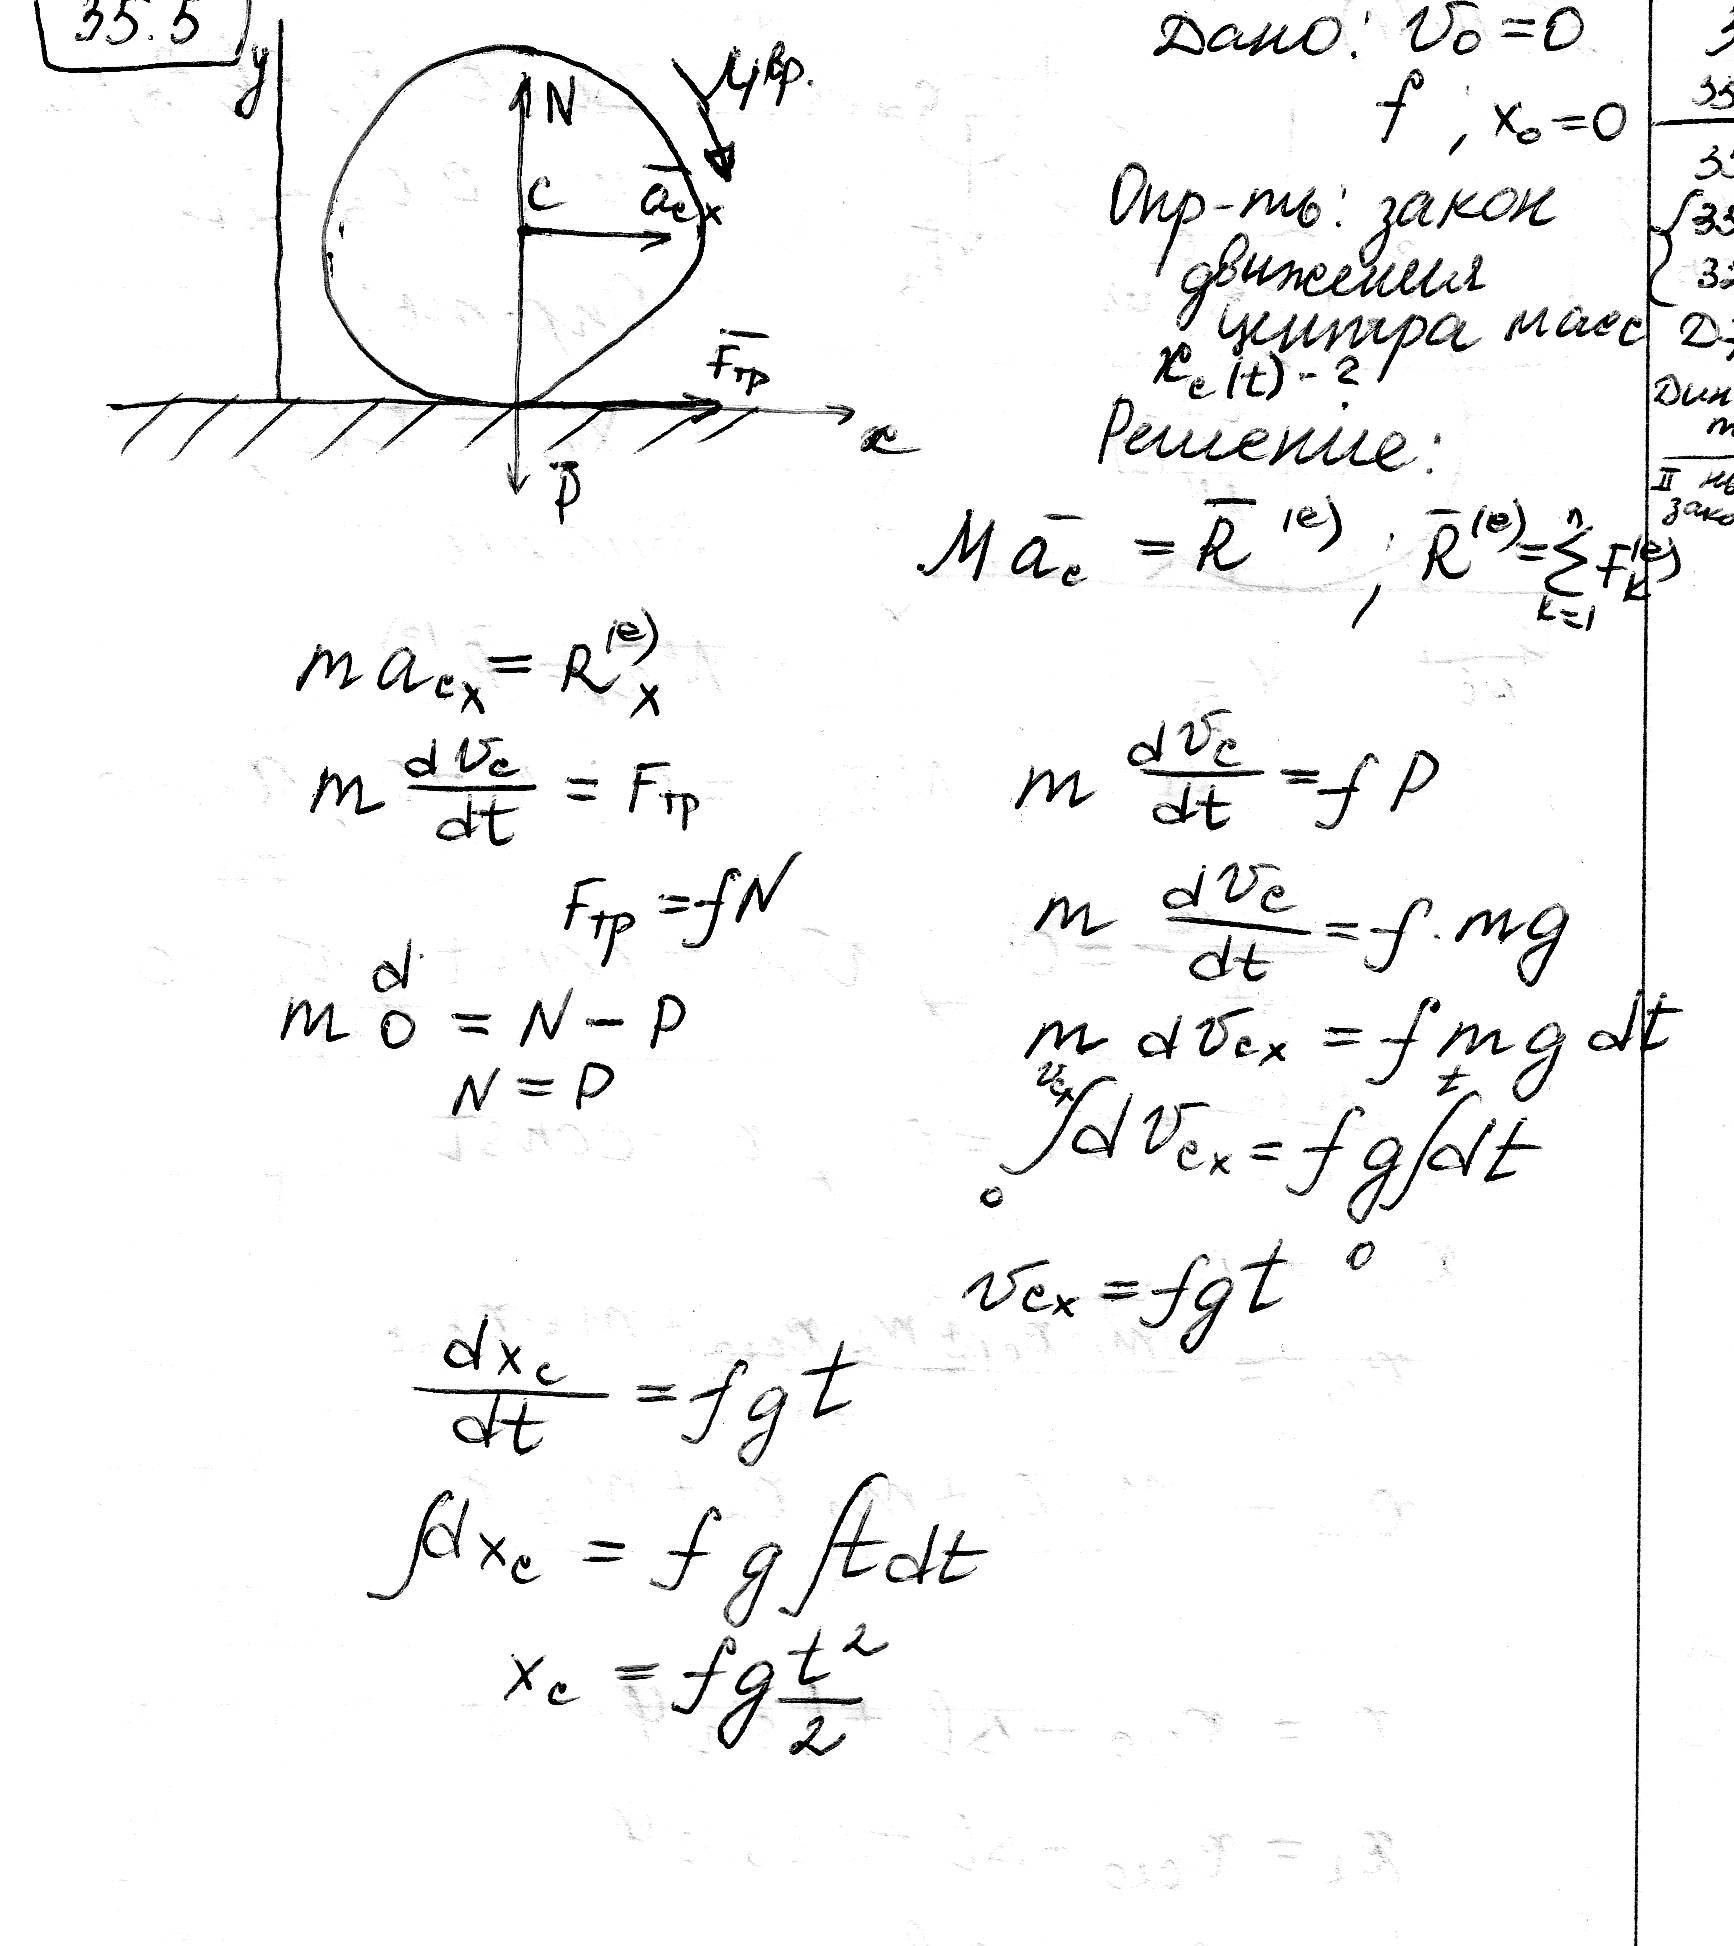 35.5
y
N
Mвр.
C
a̅cx
F̅тр
x
P̅
Дано: v₀ = 0
f , x₀ = 0
Опр-ть: закон
движения
центра масс
xc(t) - ?
Решение:
M a̅c = R̅⁽ᵉ⁾ ; R̅⁽ᵉ⁾ = Σ(k=1..n) Fk⁽ᵉ⁾
m acx = Rx⁽ᵉ⁾
m dvc/dt = Fтр
Fтр = fN
d
m 0 = N − P
N = P
m dvc/dt = f P
m dvc/dt = f · mg
m dvcx = f mg dt
∫₀^vcx dvcx = f g ∫₀^t dt
vcx = fgt
dxc/dt = fgt
∫dxc = f g ∫t dt
xc = fg t²/2
35
35
{35
Дин
II
зако